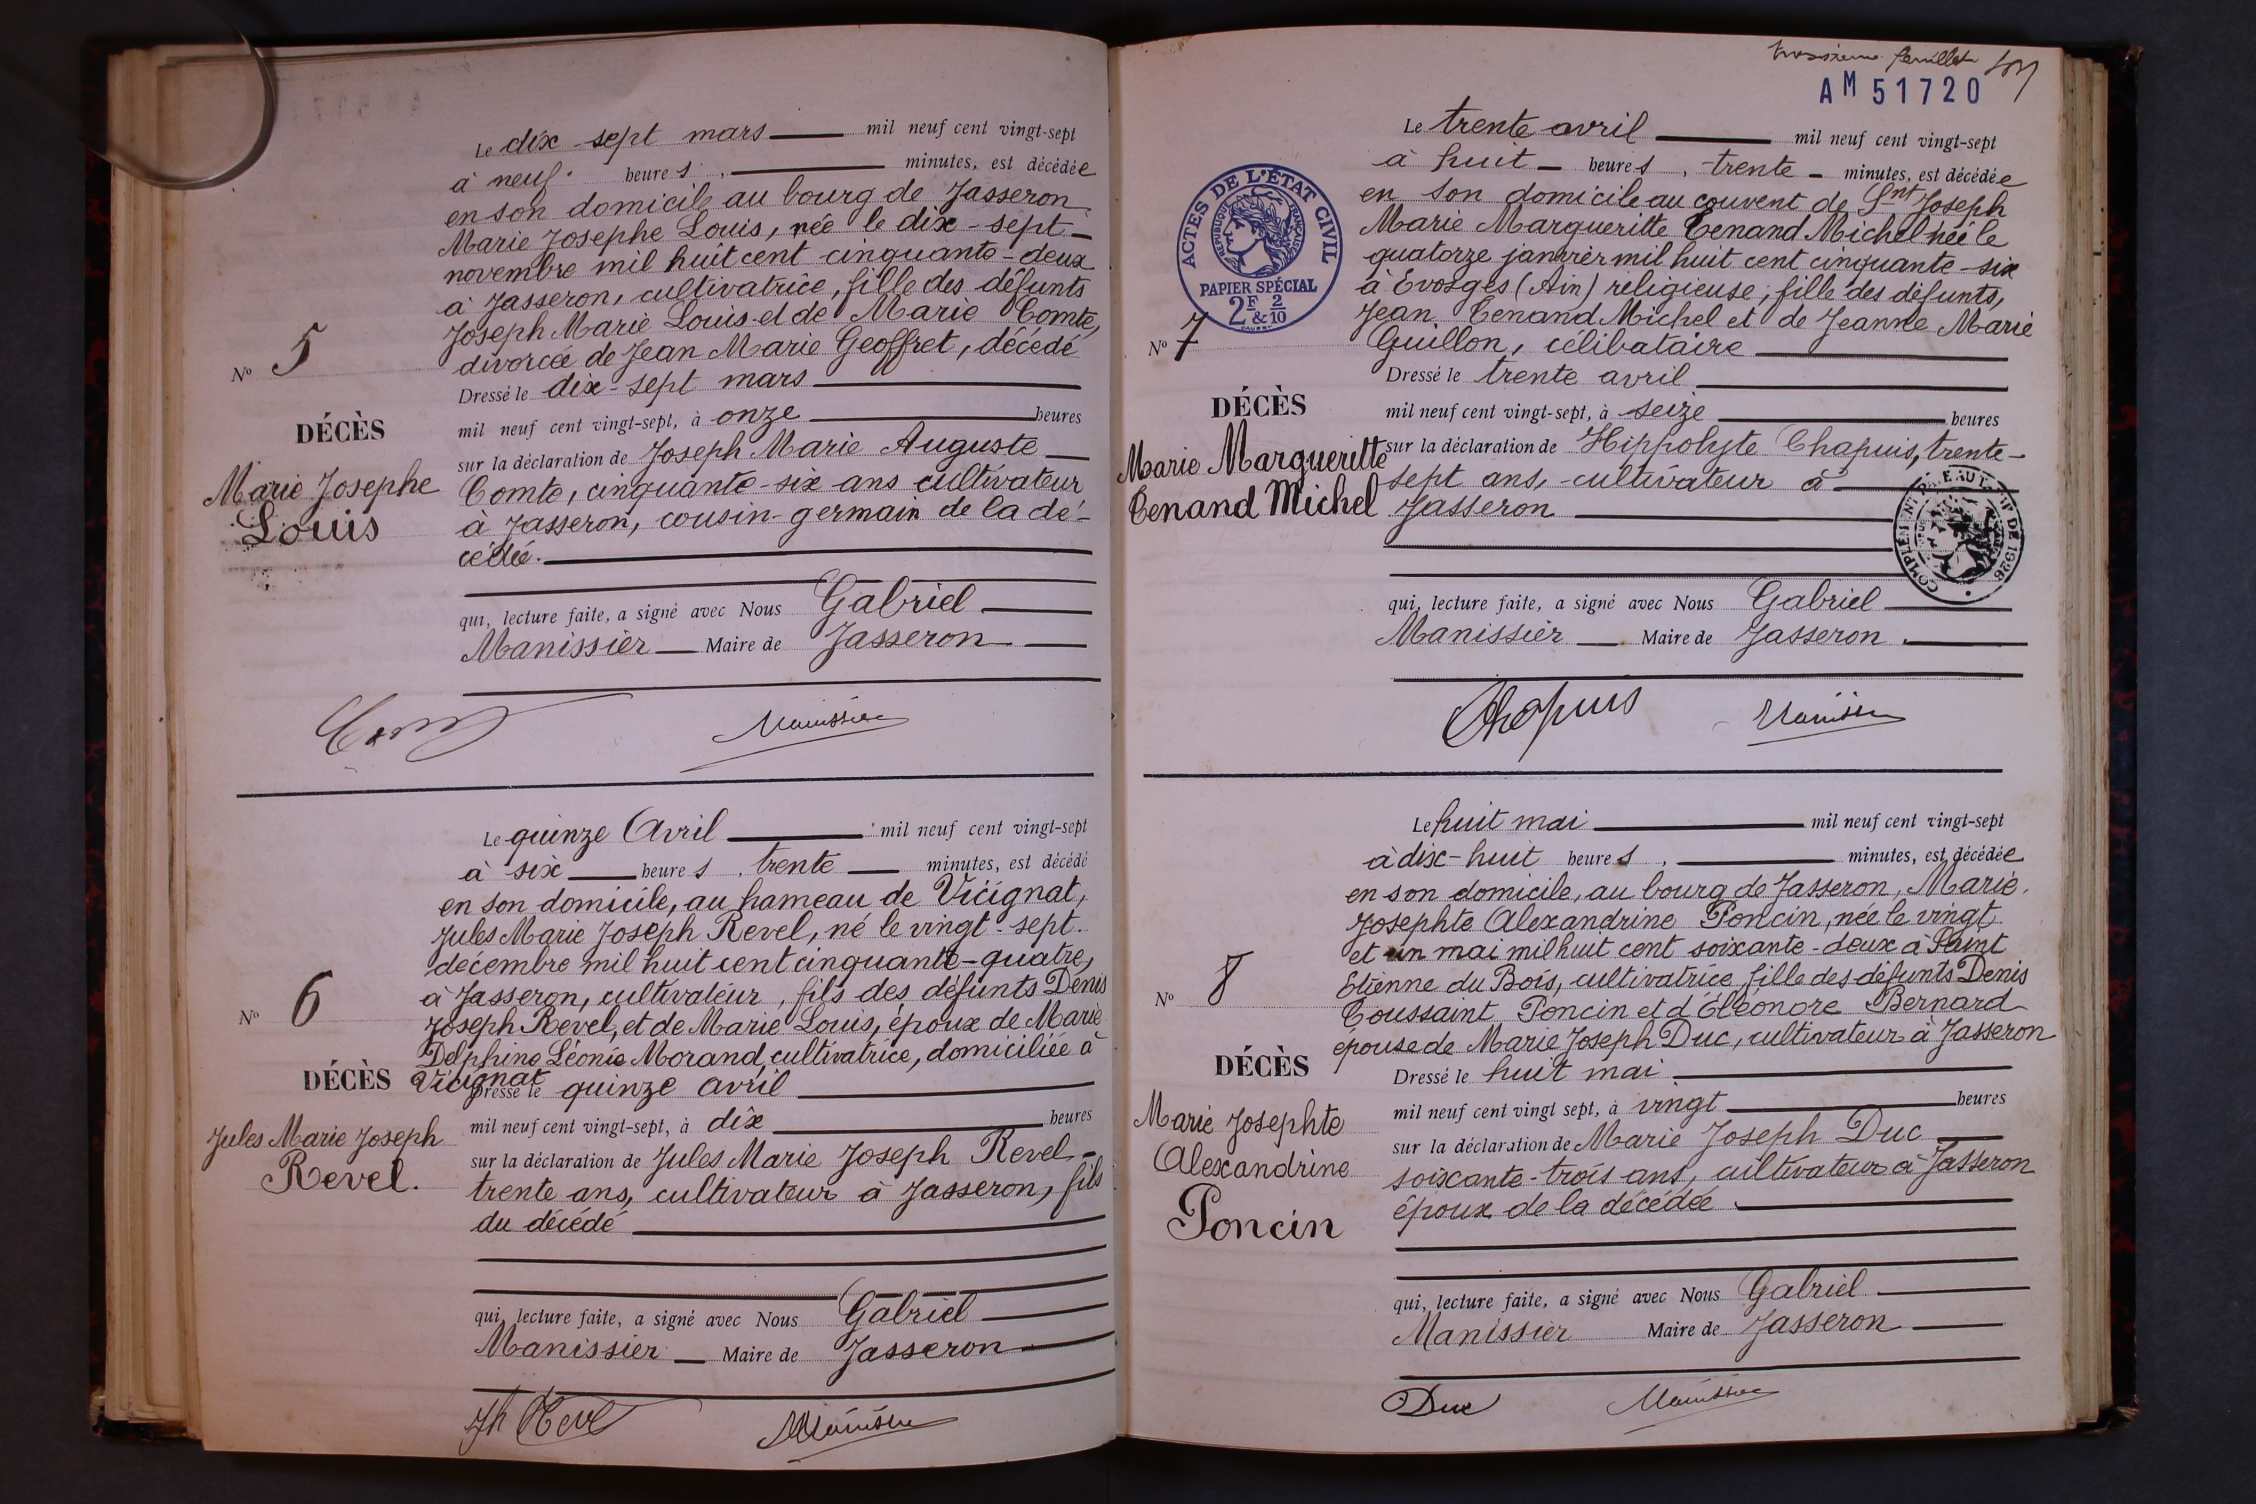 Le dix sept mars mil neuf cent vingt-sept
à neuf heures, minutes, est décédée
en son domicile au bourg de Jasseron
Marie Josephe Louis, née le dix-sept
novembre mil huit cent cinquante-deux
à Jasseron, cultivatrice, fille des défunts
Joseph Marie Louis et de Marie Comte,
divorcée de Jean Marie Geoffret, décédé
Nº 5
Dressé le dix-sept mars
DÉCÈS
mil neuf cent vingt-sept, à onze heures
sur la déclaration de Joseph Marie Auguste
Marie Josephe
Louis
Comte, cinquante-six ans cultivateur
à Jasseron, cousin-germain de la dé-
cédée.
qui, lecture faite, a signé avec Nous Gabriel
Manissier Maire de Jasseron
Manissier
Le quinze Avril mil neuf cent vingt-sept
à six heures, trente minutes, est décédé
en son domicile, au hameau de Vicignat,
Jules Marie Joseph Revel, né le vingt-sept
décembre mil huit cent cinquante-quatre,
à Jasseron, cultivateur, fils des défunts Denis
Joseph Revel, et de Marie Louis, époux de Marie
Delphine Léonie Morand, cultivatrice, domiciliée à
Vicignat
Nº 6
DÉCÈS
Dressé le quinze avril
mil neuf cent vingt-sept, à dix heures
Jules Marie Joseph
Revel.
sur la déclaration de Jules Marie Joseph Revel
trente ans, cultivateur à Jasseron, fils
du décédé
qui, lecture faite, a signé avec Nous Gabriel
Manissier Maire de Jasseron
Jh Revel
Manissier
troisième feuillet
AM 51720
ACTES DE L'ÉTAT CIVIL
RÉPUBLIQUE FRANÇAISE
PAPIER SPÉCIAL
2F & 2/10
Le trente avril mil neuf cent vingt-sept
à huit heures, trente minutes, est décédée
en son domicile au couvent de Snt Joseph
Marie Margueritte Tenand Michel née le
quatorze janvier mil huit cent cinquante-six
à Evosges (Ain) religieuse, fille des défunts,
Jean Tenand Michel et de Jeanne Marie
Guillon, célibataire
Nº 7
Dressé le trente avril
DÉCÈS
mil neuf cent vingt-sept, à seize heures
Marie Margueritte
Tenand Michel
sur la déclaration de Hippolyte Chapuis, trente-
sept ans, cultivateur à
Jasseron
qui, lecture faite, a signé avec Nous Gabriel
Manissier Maire de Jasseron.
Chapuis
Manissier
Le huit mai mil neuf cent vingt-sept
à dix-huit heures, minutes, est décédée
en son domicile, au bourg de Jasseron, Marie
Josephte Alexandrine Poncin, née le vingt
et un mai mil huit cent soixante-deux à Saint
Etienne du Bois, cultivatrice, fille des défunts Denis
Toussaint Poncin et d'Eléonore Bernard
épouse de Marie Joseph Duc, cultivateur à Jasseron
Nº 8
DÉCÈS
Dressé le huit mai
mil neuf cent vingt sept, à vingt heures
Marie Josephte
Alexandrine
Poncin
sur la déclaration de Marie Joseph Duc
soixante-trois ans, cultivateur à Jasseron
époux de la décédée
qui, lecture faite, a signé avec Nous Gabriel
Manissier Maire de Jasseron
Duc
Manissier